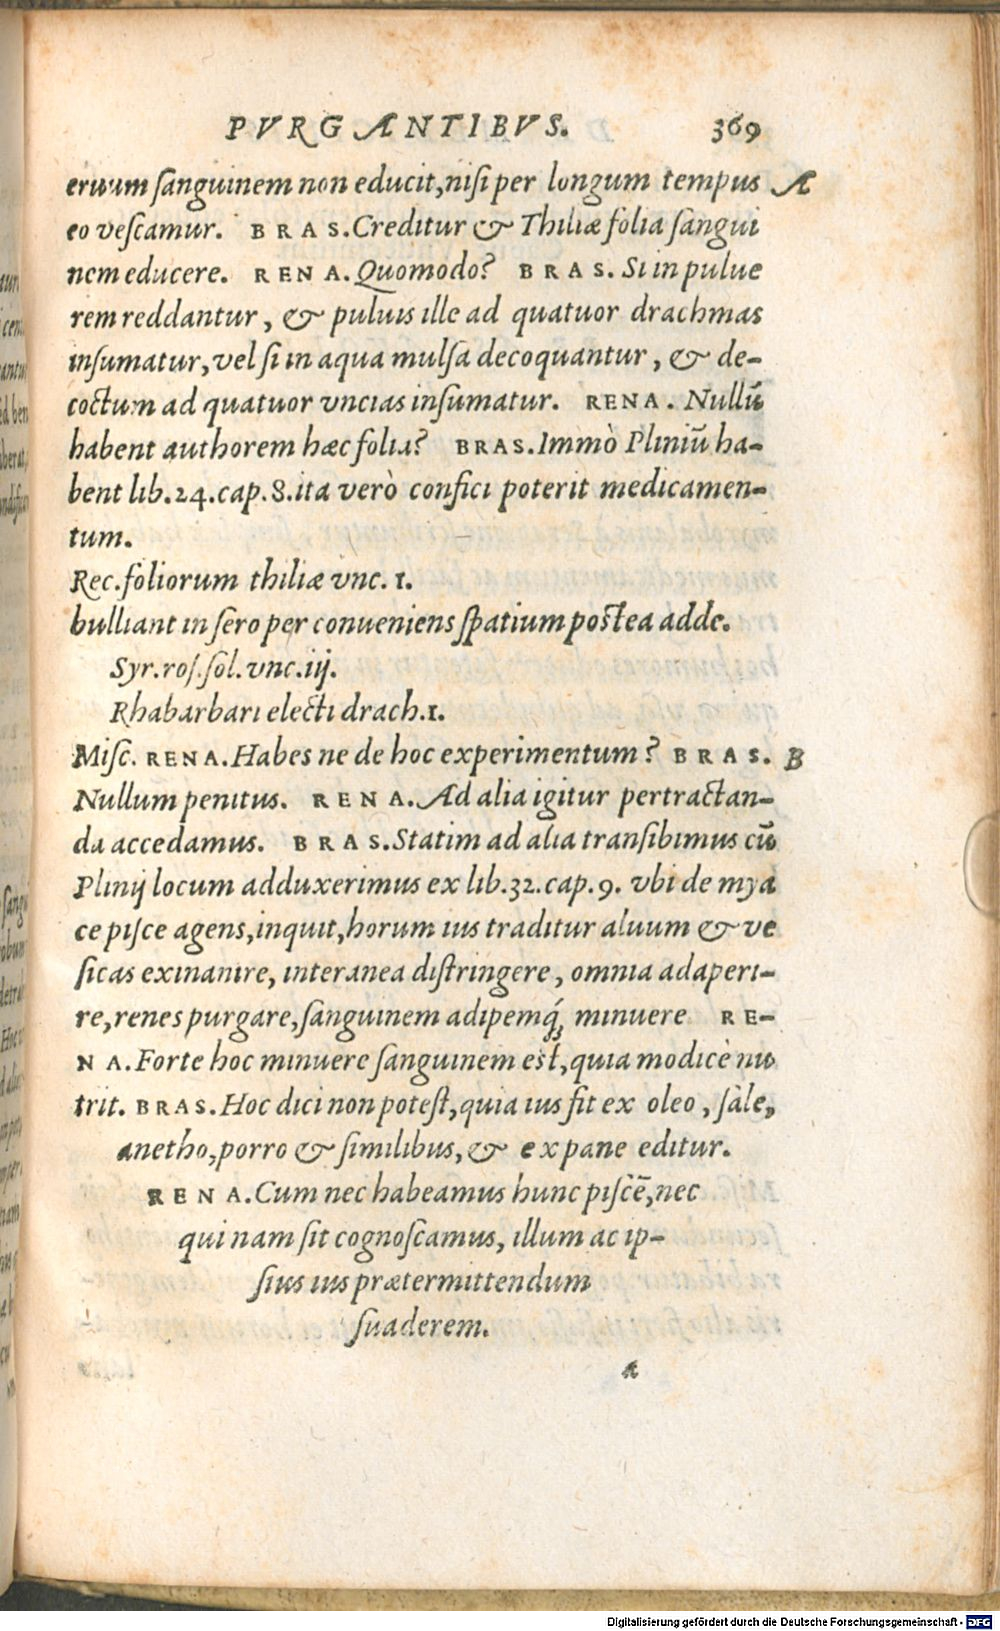 PVRGANTIBVS. 369
eruum sanguinem non educit, nisi per longum tempus A
eo vescamur. BRAS. Creditur & Thiliæ folia sangui
nem educere. RENA. Quomodo? BRAS. Si in pulue
rem reddantur, & puluis ille ad quatuor drachmas
insumatur, vel si in aqua mulsa decoquantur, & de-
coctum ad quatuor vncias insumatur. RENA. Nullū
habent authorem hæc folia? BRAS. Immò Pliniū ha-
bent lib. 24. cap. 8. ita verò confici poterit medicamen-
tum.
Rec. foliorum thiliæ vnc. 1.
bulliant in sero per conueniens spatium postea adde.
Syr. ros. sol. vnc. iij.
Rhabarbari electi drach. 1.
Misc. RENA. Habes ne de hoc experimentum? BRAS. B
Nullum penitus. RENA. Ad alia igitur pertractan-
da accedamus. BRAS. Statim ad alia transibimus cū
Plinij locum adduxerimus ex lib. 32. cap. 9. vbi de mya
ce pisce agens, inquit, horum ius traditur aluum & ve
sicas exinanire, interanea distringere, omnia adaperi-
re, renes purgare, sanguinem adipemq́; minuere RE-
NA. Forte hoc minuere sanguinem est, quia modicè nu
trit. BRAS. Hoc dici non potest, quia ius fit ex oleo, sale,
anetho, porro & similibus, & ex pane editur.
RENA. Cum nec habeamus hunc piscē, nec
qui nam sit cognoscamus, illum ac ip-
sius ius prætermittendum
suaderem.
A
Digitalisierung gefördert durch die Deutsche Forschungsgemeinschaft - DFG